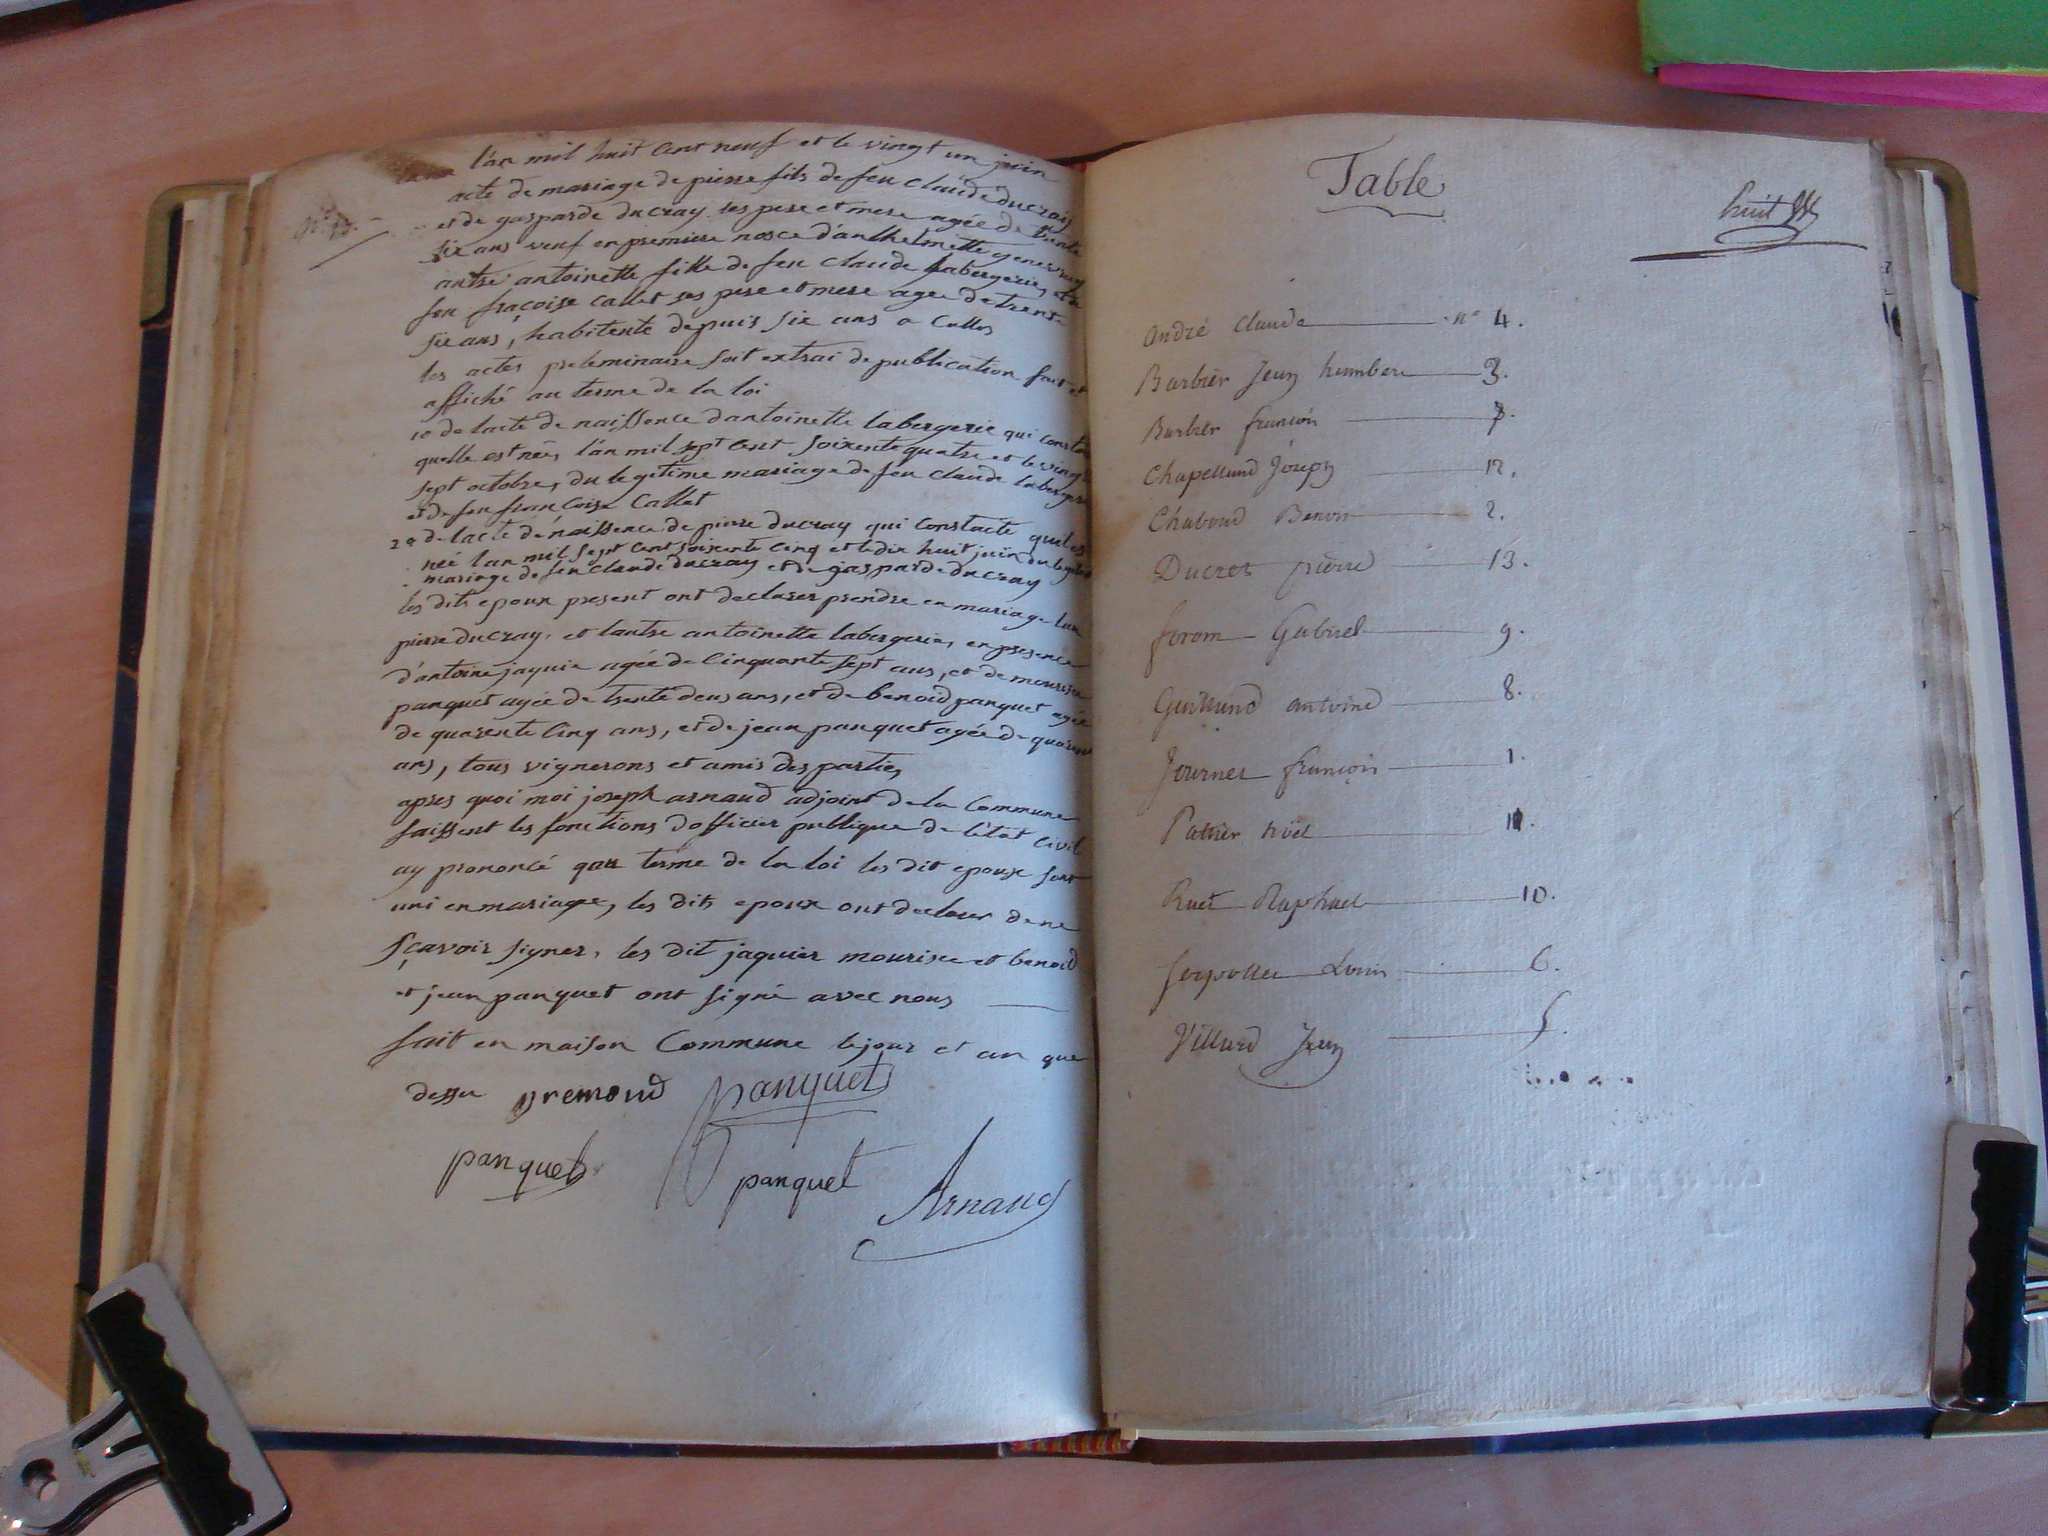 l'an mil huit cent neuf et le vingt un juin
acte de mariage de pierre fils de feu claude ducray
et de gasparde ducray ses pere et mere agée de trente
six ans veuf en premiere nosce d'anthelmette
autre antoinette fille de feu claude labergerie, et de
feu fraçoise callet ses pere et mere agee de trente
six ans, habitente depuis six ans a
les actes preleminaire sont extrai de publication fait et
affiché au terme de la loi
1o de lacte de naissence d'antoinette labergerie qui constate
quelle est née, l'an mil sept cent soixente quatre et le vingt
sept octobre, du legetime mariage de feu claude labergerie
et de feu francoise callet
2o de lacte de naissence de pierre ducray qui constate quil est
né l'an mil sept cent soixente cinq et le dix huit juin du legitime
mariage de feu claude ducray et de gasparde ducray
les dits epoux present ont declarer prendre en mariage lun
pierre ducray, et lautre antoinette labergerie, en presence
d'antoine jaquie agée de cinquante sept ans, et de mourise
panquet agée de trente deus ans, et de benoid panquet agée
de quarente cinq ans, et de jean panquet agée de quarente
ans, tous vignerons et amis des parties
apres quoi moi joseph arnaud adjoint de la commune
faissent les fonctions d'officier publique de l'état civil
ay prononcé qau terme de la loi les dit epoux sont
uni en mariage, les dits epoux ont declarer de ne
sçavoir signer, les dit jaquier mourise et benoid
et jean panquet ont signé avec nous
fait en maison commune le jour et an que
dessu panquet
panquet panquet Arnaud
Table
huit
André Claude n° 4.
Barbier Jean humber 3.
Barbier françois 7.
Chapelland Joseph 12.
Chaboud Benoit 2.
Ducret pierre 13.
Gabriel 9.
antoine 8.
Journet françois 1.
noël 11.
Ruet Raphael 10.
Louis 6.
Villard Jean 5.